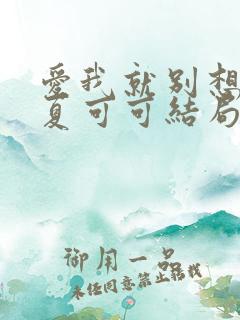 愛我就別想
夏可可結局
御用一品
未经同意禁止搭载